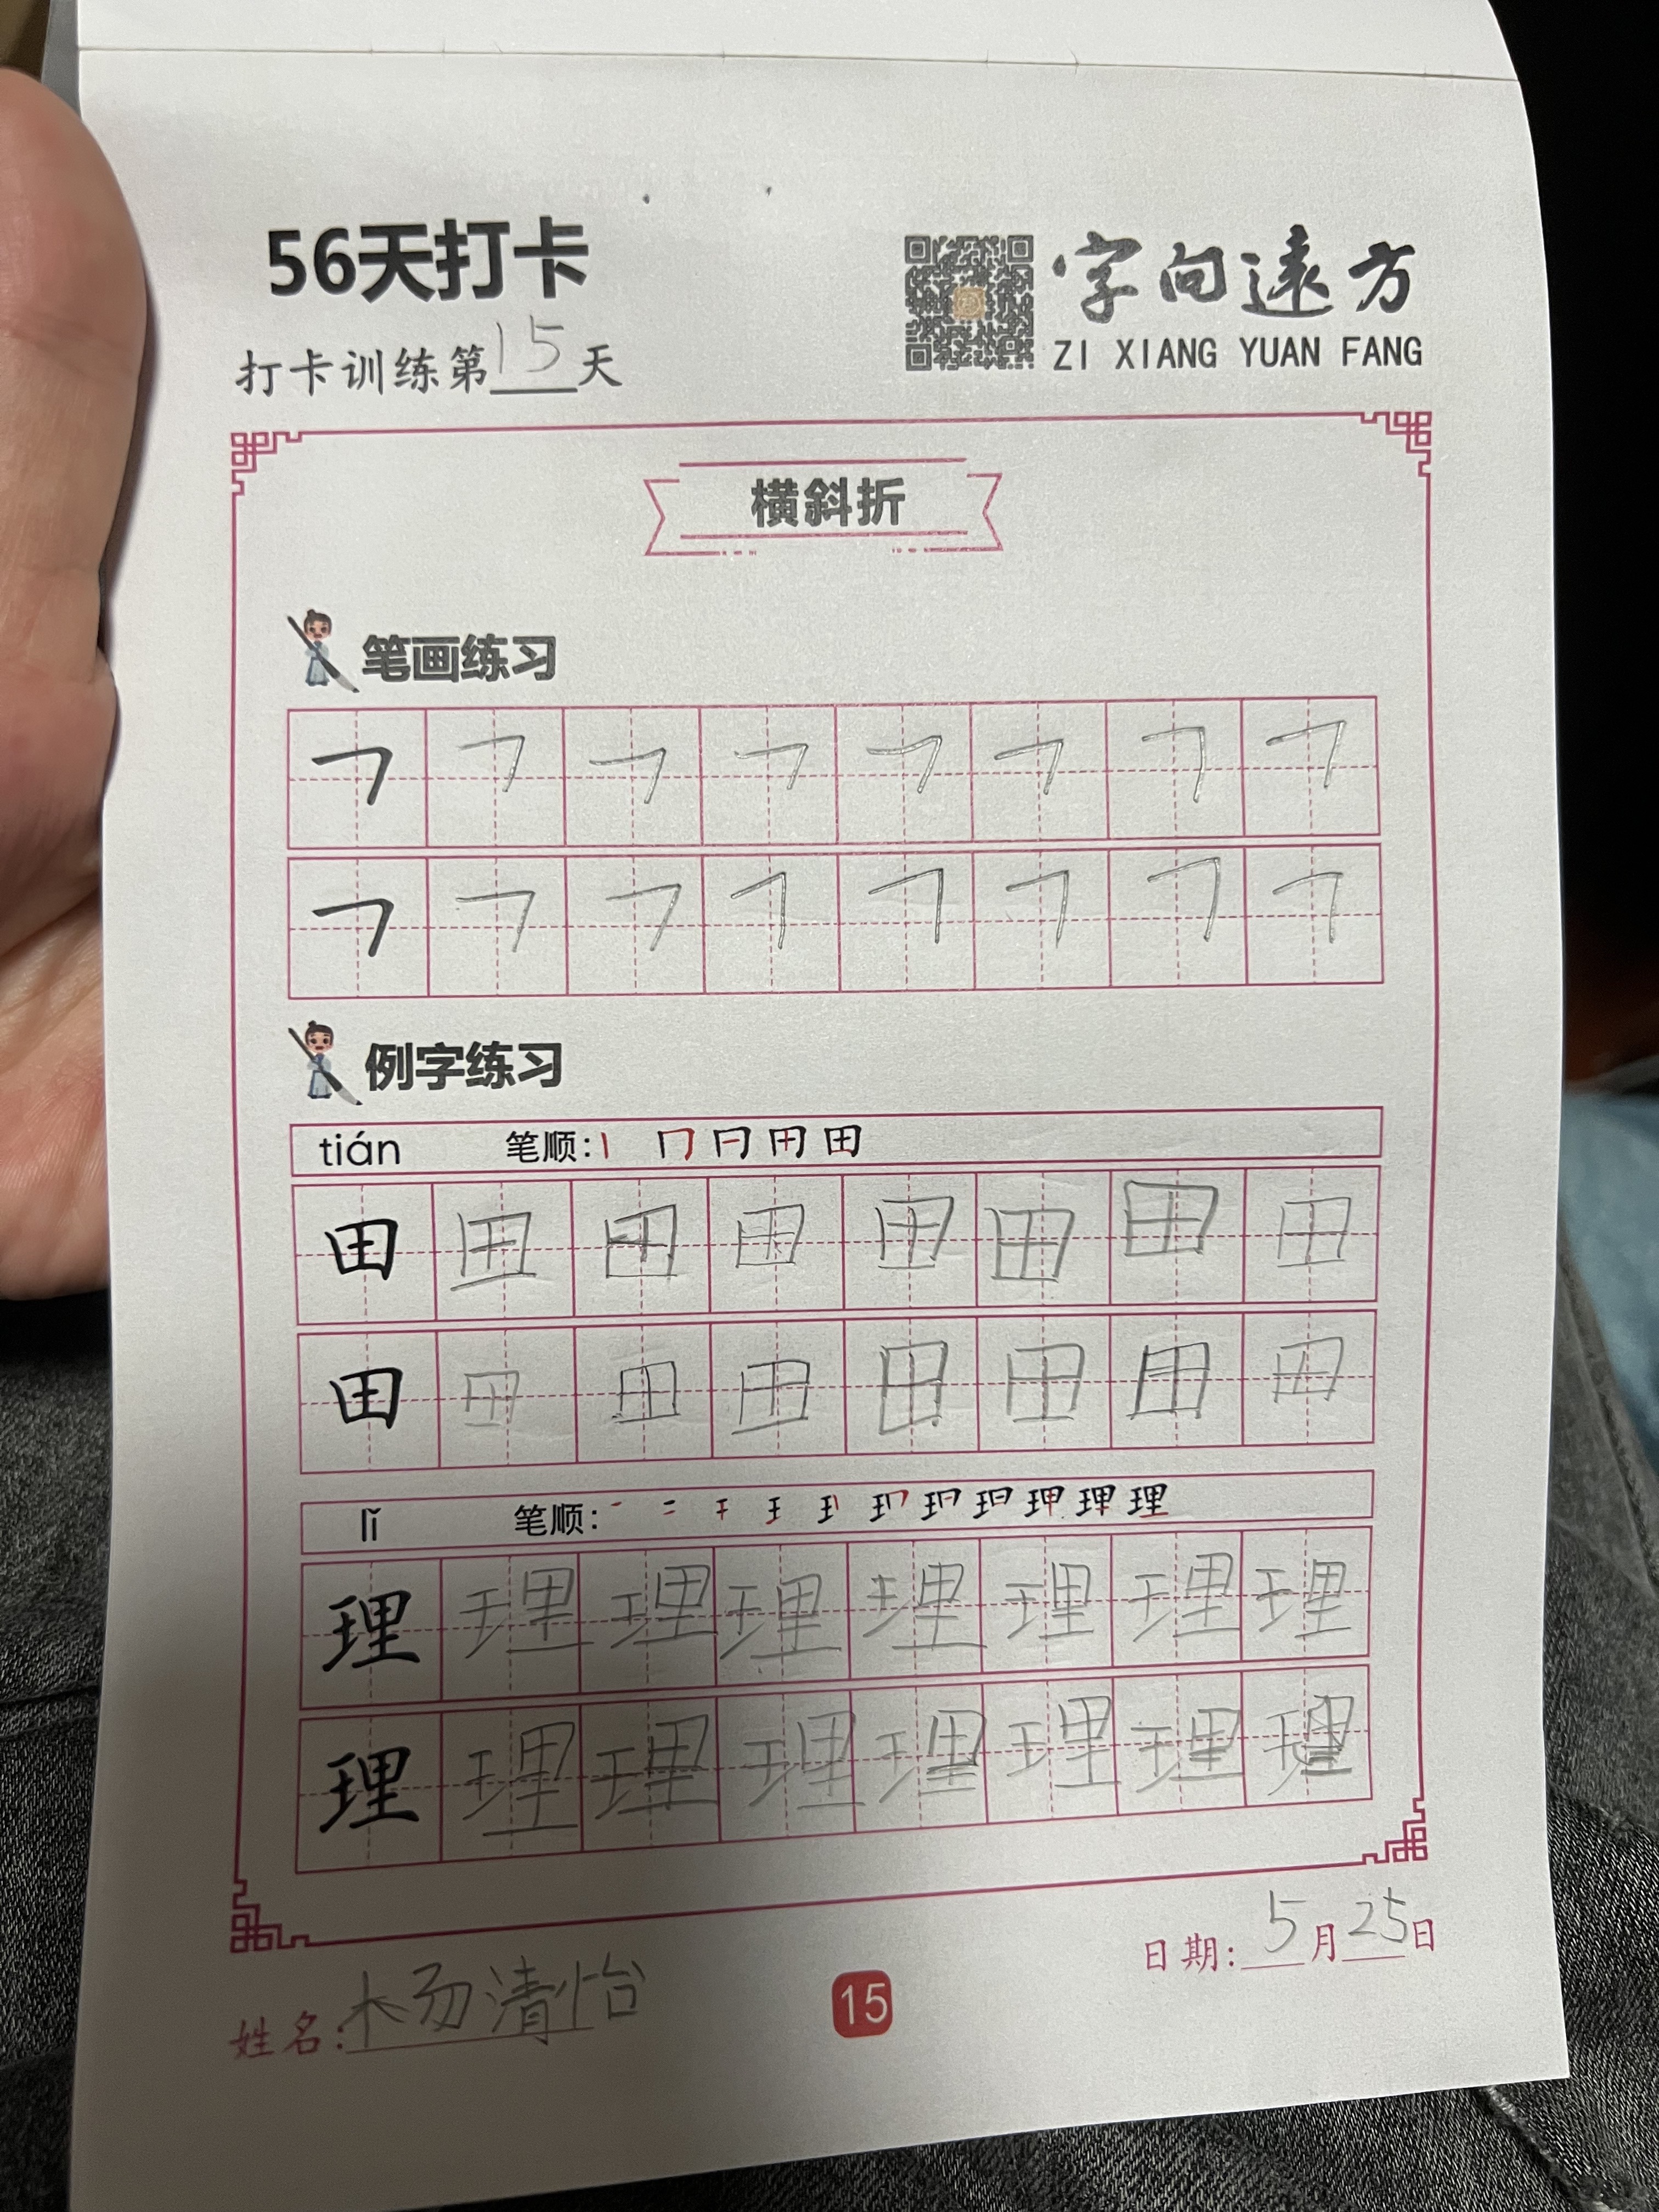 56天打卡
字向遠方
ZI XIANG YUAN FANG
打卡训练第15天
横斜折
笔画练习
㇕ ㇕ ㇕ ㇕ ㇕ ㇕ ㇕ ㇕
㇕ ㇕ ㇕ ㇕ ㇕ ㇕ ㇕ ㇕
例字练习
tián 笔顺: 丨 冂 冃 田 田
田 田 田 田 田 田 田 田
田 田 田 田 田 田 田 田
lǐ 笔顺:
理 理 理 理 理 理 理 理
理 理 理 理 理 理 理 理
日期: 5月25日
姓名: 杨清怡
15